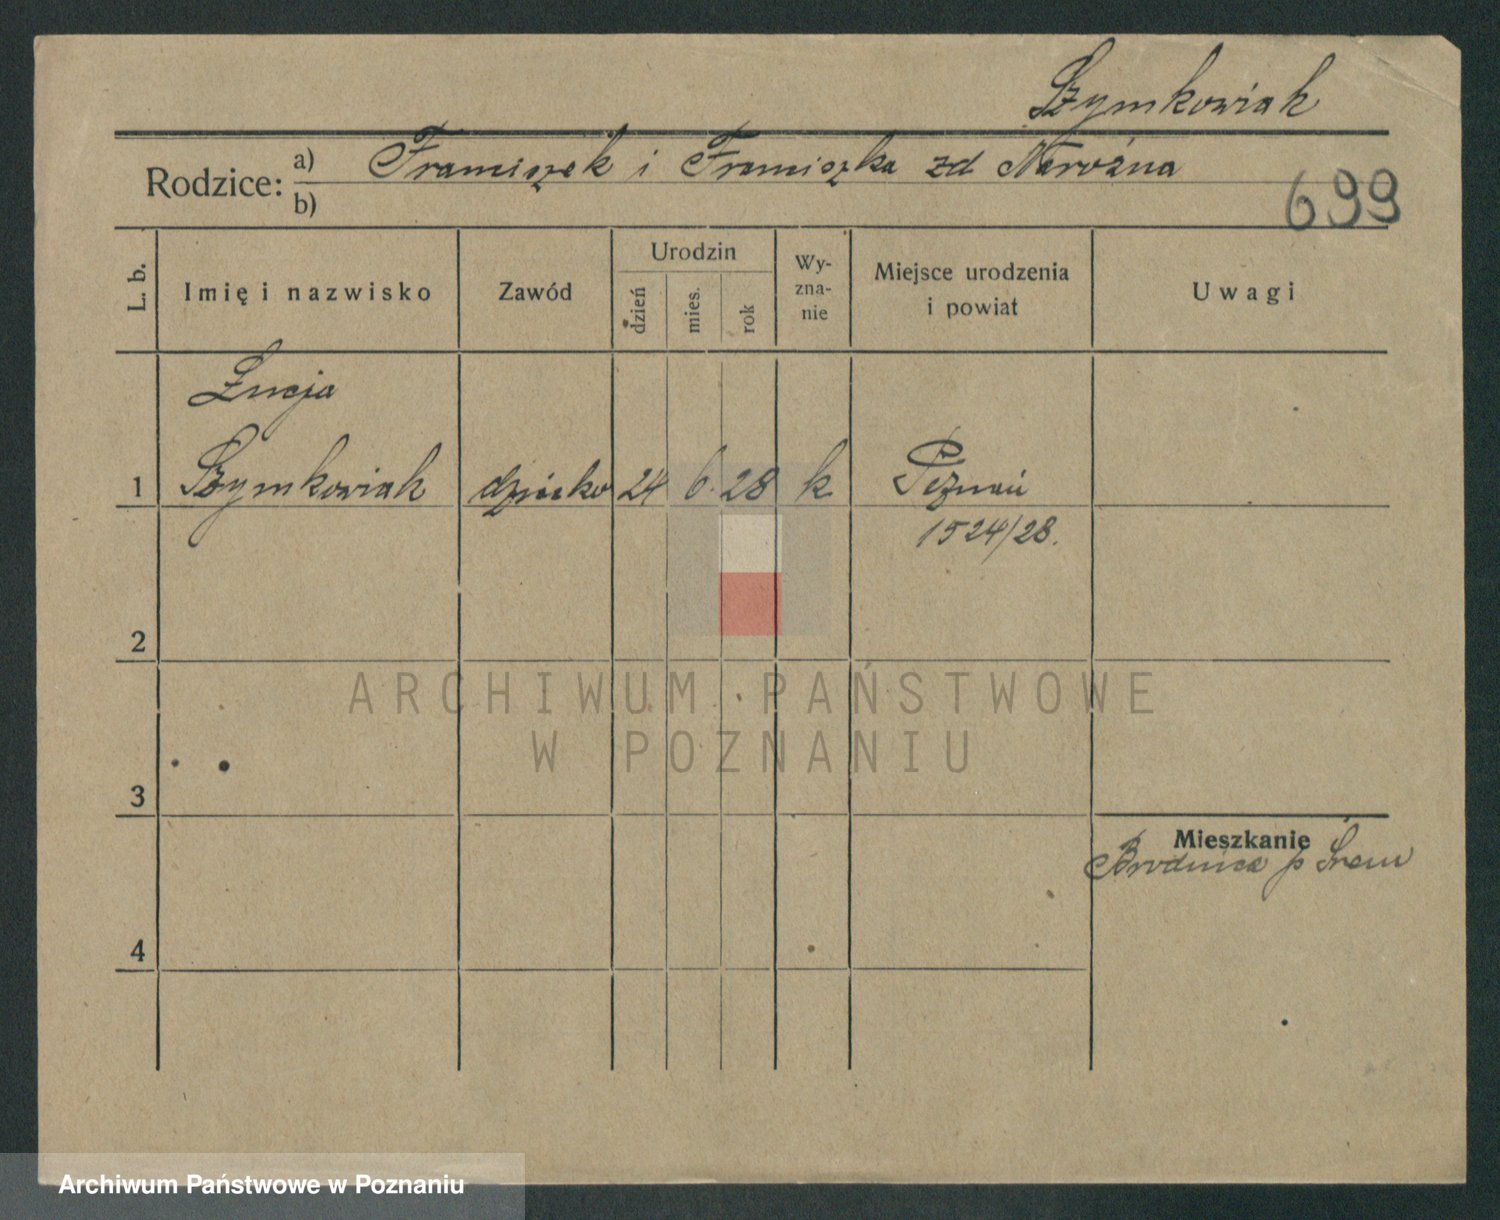 Szymkowiak
Rodzice: a) Franciszek i Franciszka zd Narożna
b)
699
L. b.
Imię i nazwisko
Zawód
Urodzin
dzień
mies.
rok
Wy-
zna-
nie
Miejsce urodzenia
i powiat
Uwagi
Łucja
1 Szymkowiak dziecko 24 6. 28 k Poznań
1524/28.
2
ARCHIWUM PAŃSTWOWE
W POZNANIU
3
Mieszkanie
Brodnica p Śrem
4
Archiwum Państwowe w Poznaniu